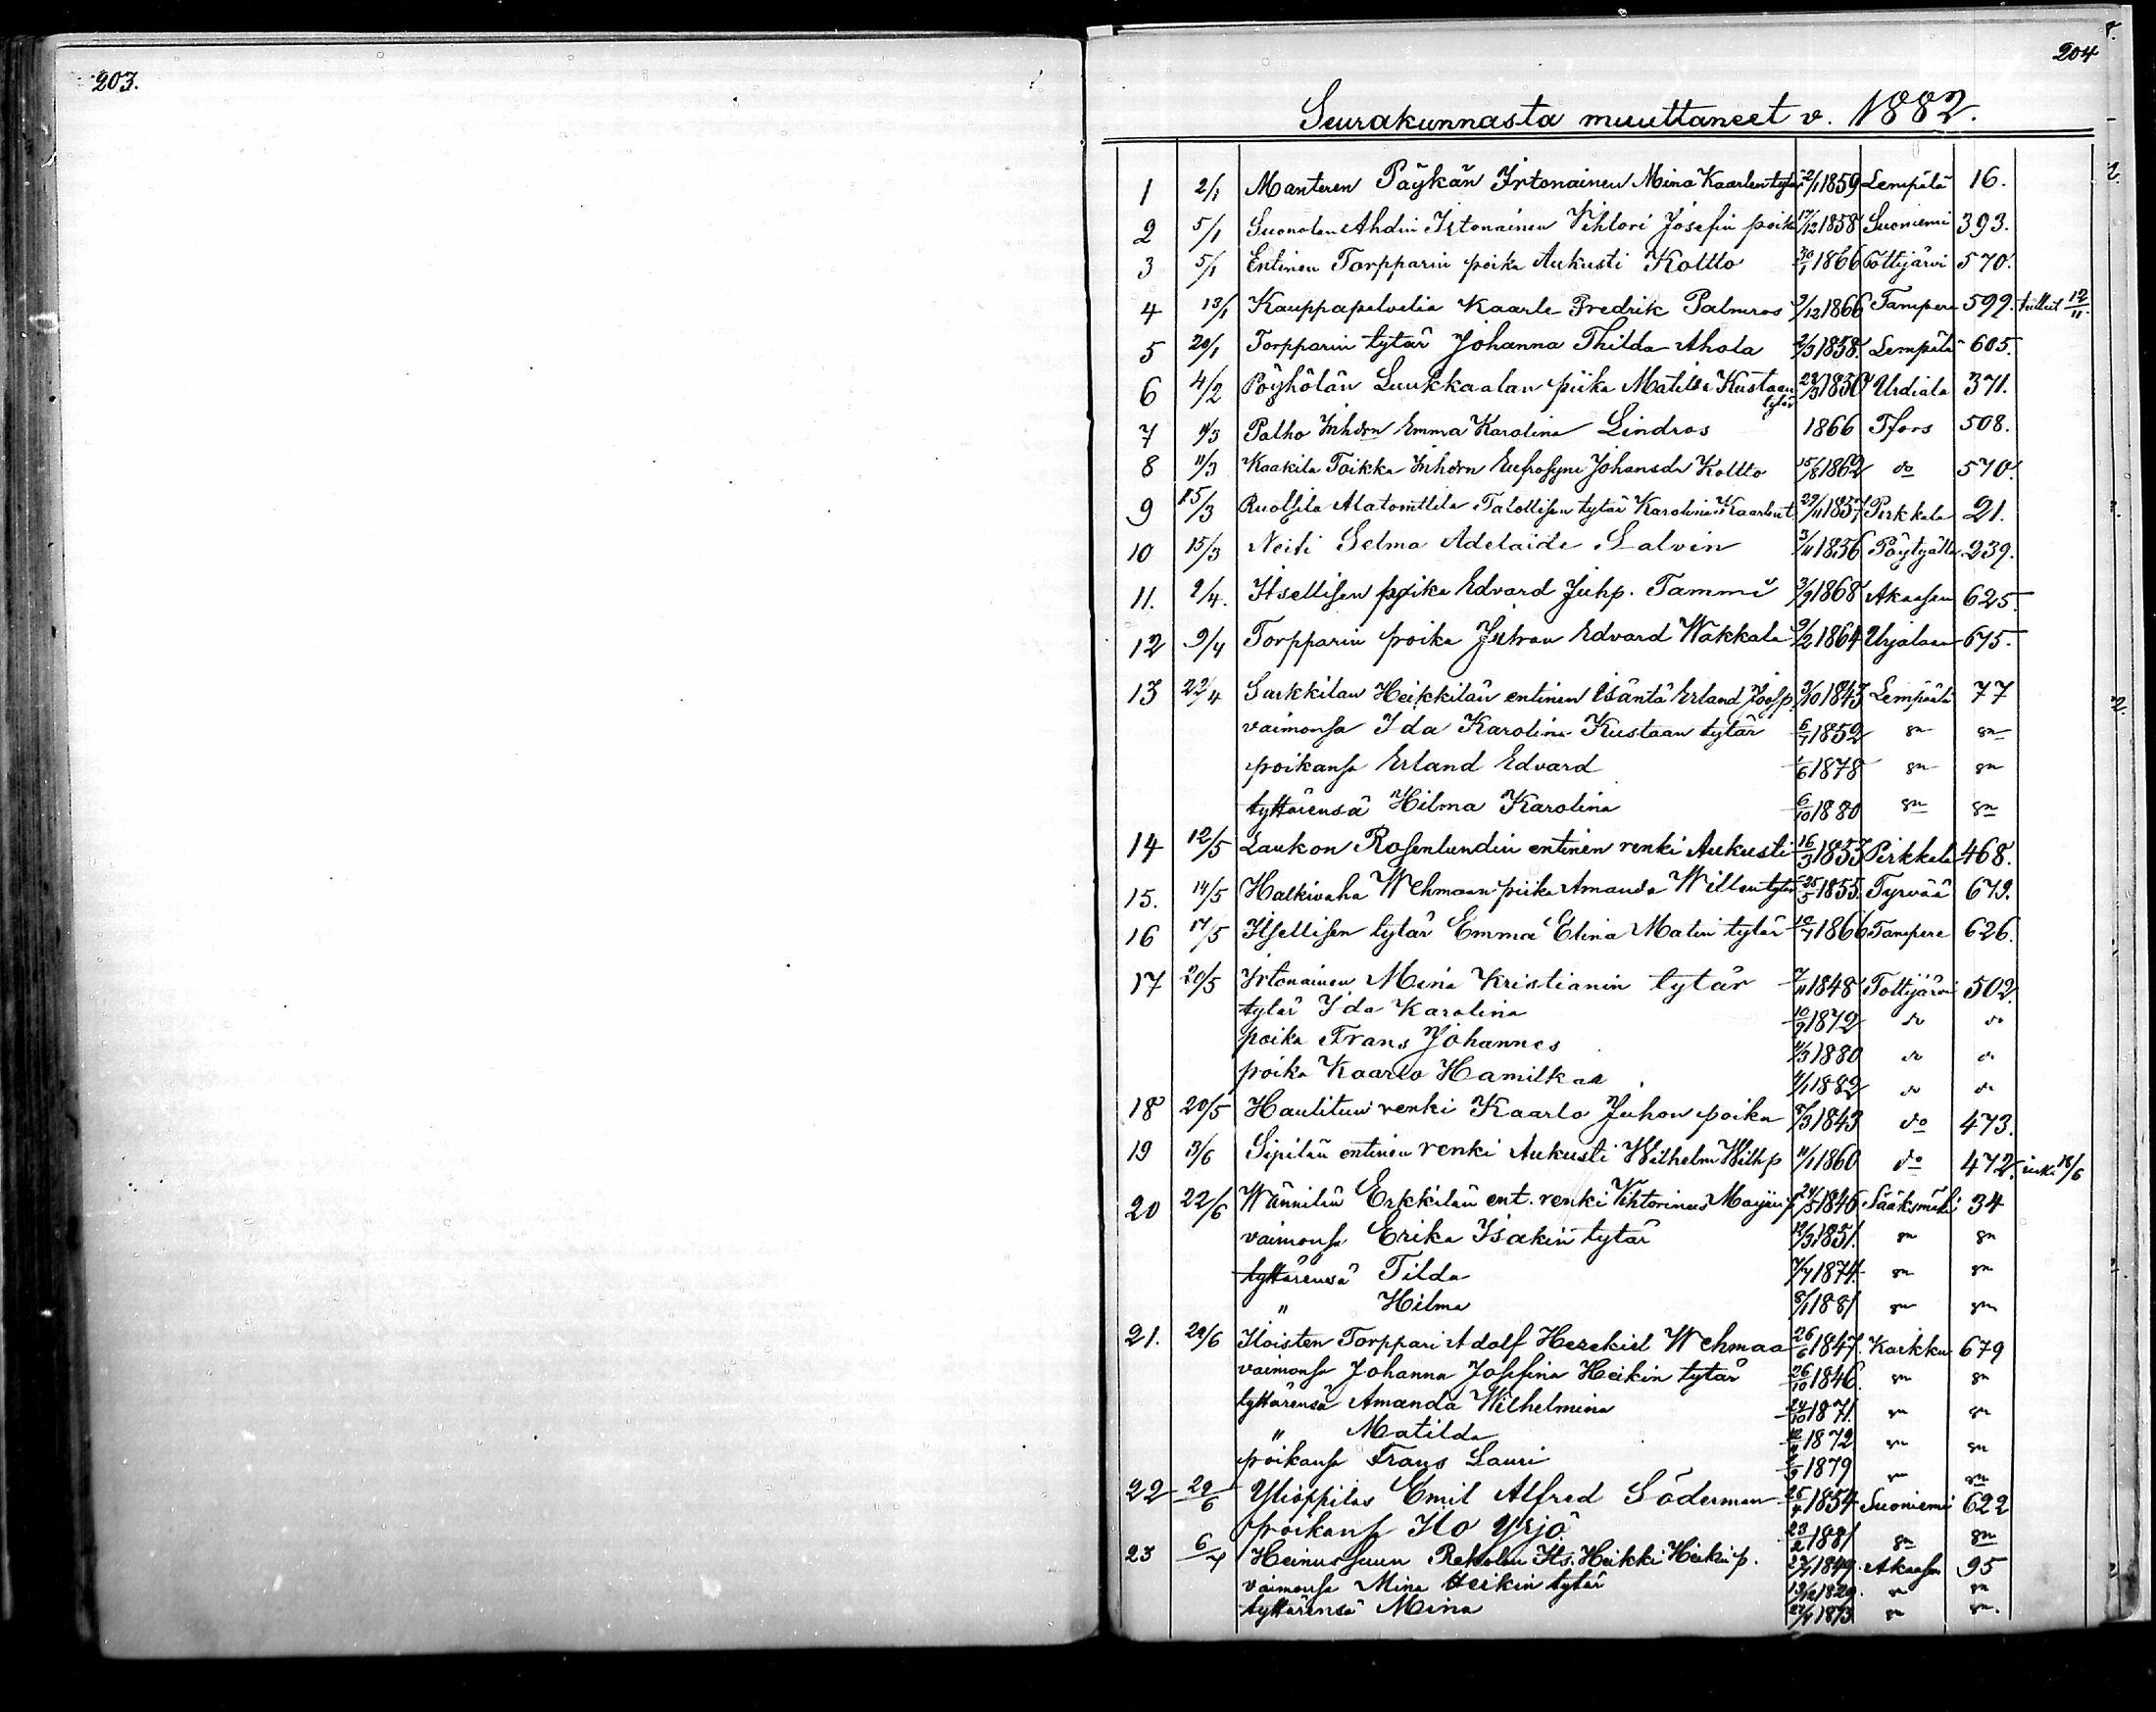 203.
204
Seurakunnasta muuttaneet v. 1882.
1 2/1 Manteren Päykän Irtonainen Mina Kaarlen tytär 2/1 1859 Lempälä 16.
2 5/1 Suonolan Ahdin Irtonainen Vihtori Josefin poika 17/12 1858 Suoniemi 393.
3 5/1 Entinen Torpparin poika Aukusti Koltto 30/1 1866 Tottijärvi 570.
4 13/1 Kauppapalvelia Kaarle Fredrik Palmros 9/12 1866 Tampere 599. tullut 12/11
5 20/1 Torpparin tytär Johanna Thilda Ahola 2/3 1858. Lempälä 605.
6 4/2 Pöyhölän Luukkaalan piika Matilda Kustaan tytär 28/3 1830 Urdiala 371.
7 11/3 Palho Inhdrn Emma Karolina Lindros 1866 Tfors 508.
8 11/3 Kaakila Toikka Inhdrn Eufrosyne Johansdr Koltto 15/8 1862 do 570.
9 15/3 Ruolsila Alatomttila Talollisen tytär Karolina Kaarlen t. 29/11 1857 Pirkkala 21.
10 15/3 Neiti Selma Adelaide Salvin 3/11 1836 Pöytyälle 239.
11. 9/4. Itsellisen poika Edvard Juhp. Tammi 3/9 1868 Akaasen 625.
12 9/4 Torpparin poika Juhan Edvard Wakkala 9/2 1864 Urjalaan 675.
13 22/4 Sarkkilan Heikkilän entinen isäntä Erland Joosp. 3/10 1843 Lempäälä 77
vaimonsa Ida Karolina Kustaan tytär 6/7 1852 sn sn
poikansa Erland Edvard 1/6 1878 sn sn
tyttärensä Hilma Karolina 6/10 1880 sn sn
14 12/5 Laukon Rosenlundin entinen renki Aukusti 16/3 1853 Pirkkala 468.
15. 14/5 Halkivaha Wehmaan piika Amanda Willen tytär 25/5 1855. Tyrvää 679.
16 17/5 Itsellisen tytär Emma Elina Matin tytär 10/7 1866 Tampere 626.
17 20/5 Irtonainen Mina Kristianin tytär 7/11 1848 Tottijärvi 502.
tytär Ida Karolina 10/9 1872 do do
poika Frans Johannes 11/3 1880 do do
poika Kaarlo Hamilkar 4/1 1882 do do
18 20/5 Haulitun renki Kaarlo Juhon poika 8/3 1843 do 473.
19 3/6 Sipilän entinen renki Aukusti Wilhelm Wilhp 11/1 1860 do 472. 18/6
20 22/6 Wännilän Erkkilän ent. renki Vihtorinus Maijan p. 24/5 1846 Sääksmäki 34
vaimonsa Erika Isakin tytär 12/3 1851. sn sn
tyttärensä Tilda 7/7 1874. sn sn
" Hilma 8/1 1881 sn sn
21. 29/6 Iloisten Torppari Adolf Hezekiel Wehmaa 26/6 1847. Karkku 679
vaimonsa Johanna Josefina Heikin tytär 26/10 1846. sn sn
tyttärensä Amanda Wilhelmina 24/10 1871. sn sn
" Matilda 12/11 1872 sn sn
poikansa Frans Lauri 1879 sn sn
22 29/6 Ylioppilas Emil Alfred Söderman 25/4 1854 Suoniemi 622
poikansa Ilo Yrjö 23/2 1881 sn sn
23 6/7 Heinussuun Rekolan Its. Heikki Heikip. 27/7 1849. Akaasen 95
vaimonsa Mina Heikin tytär 13/12 1829. sn sn
tyttärensä Mina 27/7 1873 sn sn.